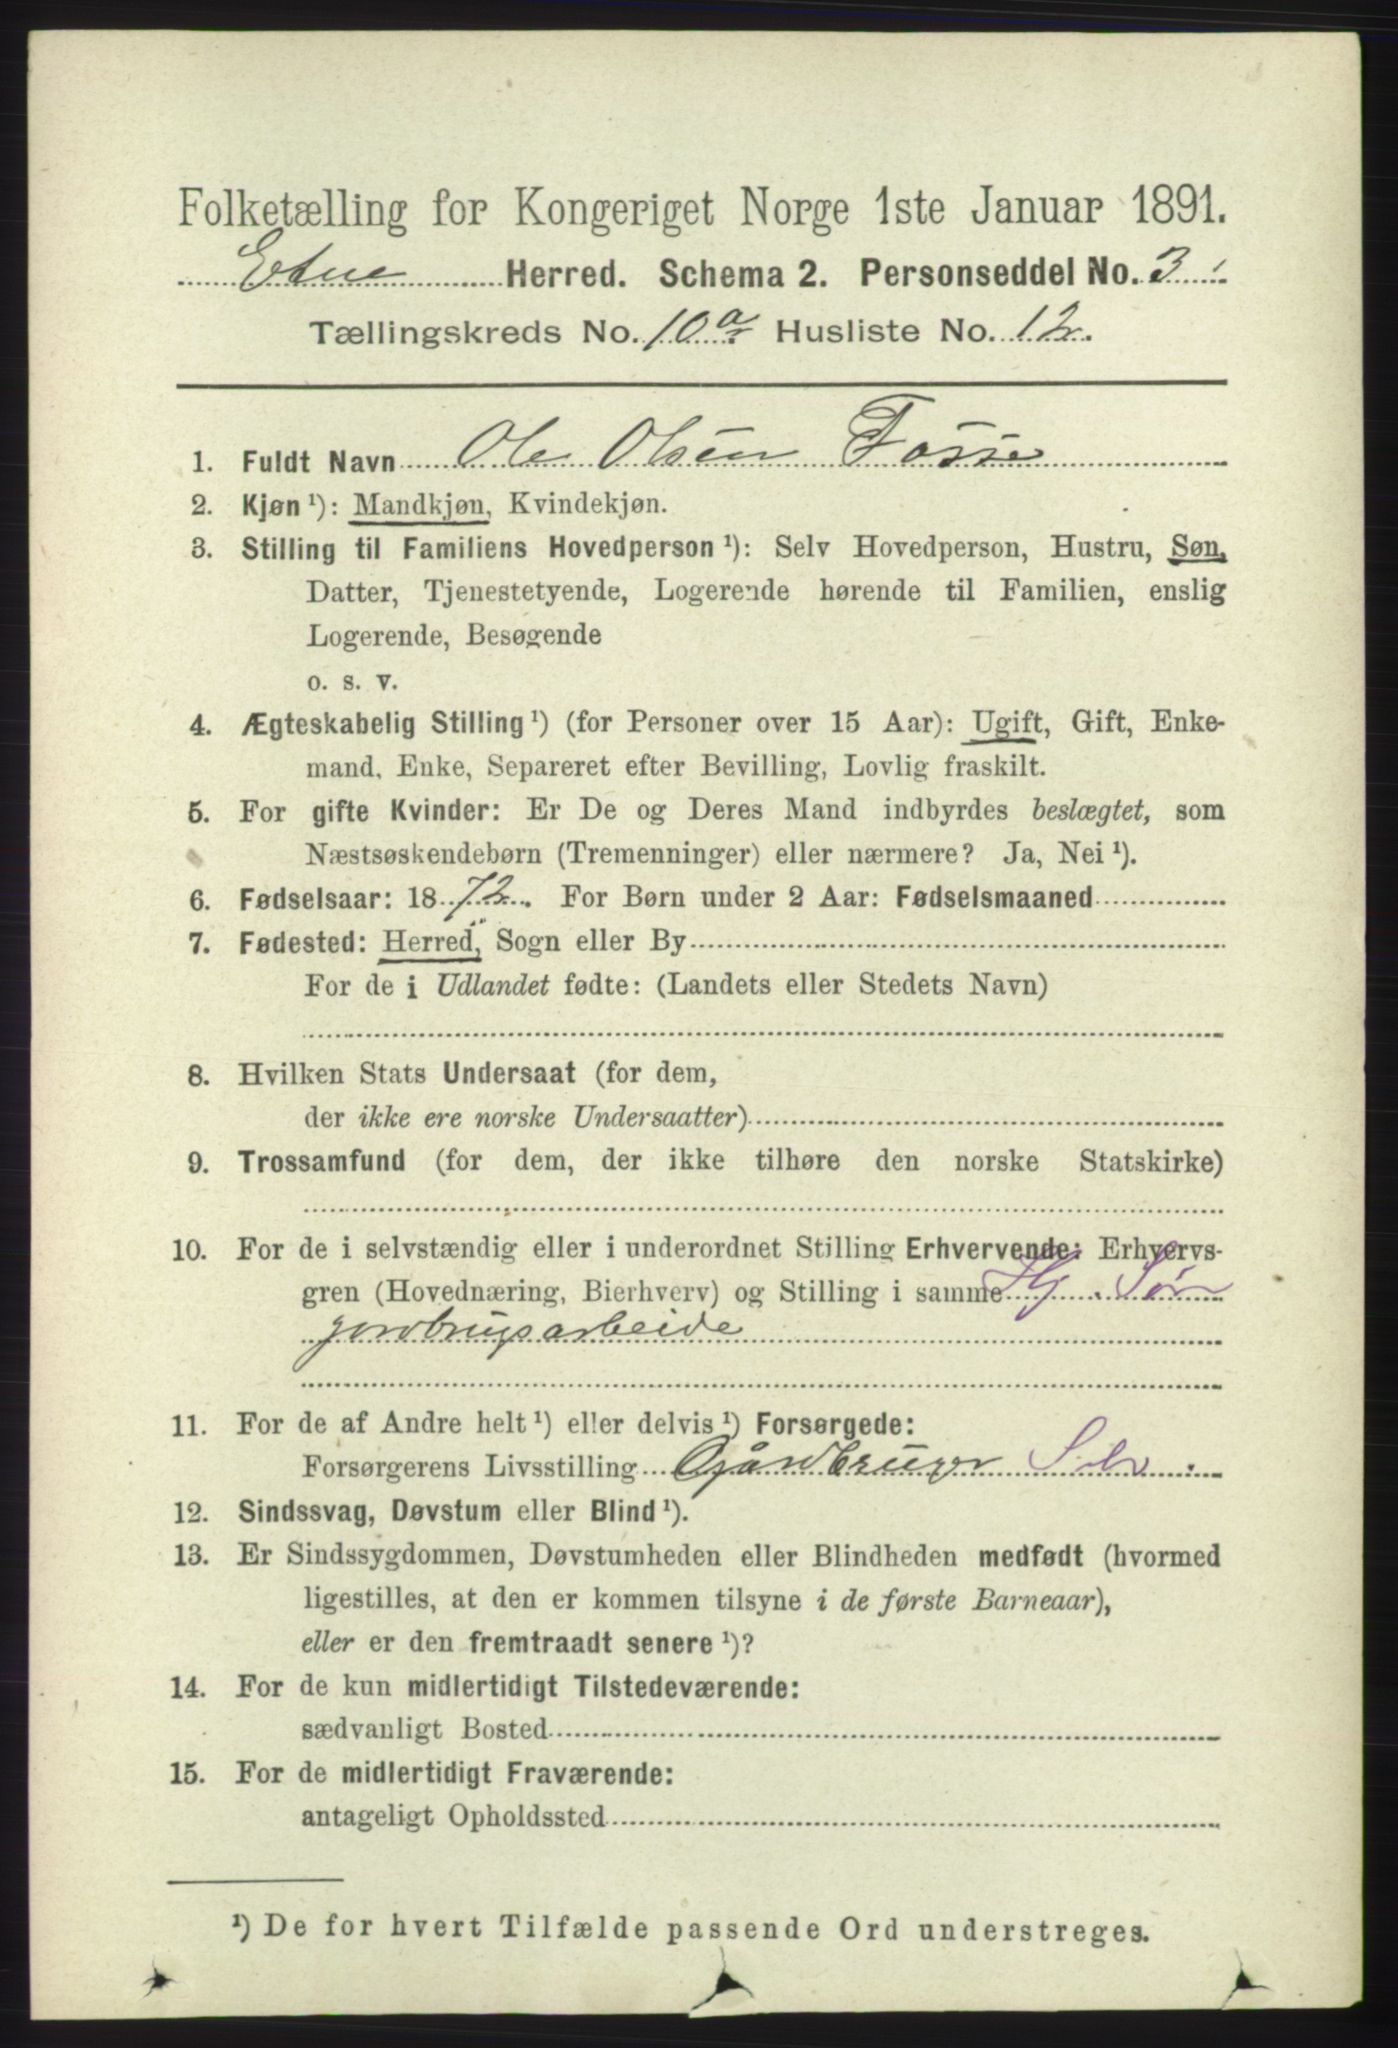 Folketælling for Kongeriget Norge 1ste Januar 1891.
Etne Herred. Schema 2. Personseddel No. 3
Tællingskreds No. 10 a Husliste No. 12.
1. Fuldt Navn Ole Olsen Fosse
2. Kjøn ¹): Mandkjøn, Kvindekjøn.
3. Stilling til Familiens Hovedperson ¹): Selv Hovedperson, Hustru, Søn,
Datter, Tjenestetyende, Logerende hørende til Familien, enslig
Logerende, Besøgende
o. s. v.
4. Ægteskabelig Stilling ¹) (for Personer over 15 Aar): Ugift, Gift, Enke-
mand, Enke, Separeret efter Bevilling, Lovlig fraskilt.
5. For gifte Kvinder: Er De og Deres Mand indbyrdes beslægtet, som
Næstsøskendebørn (Tremenninger) eller nærmere? Ja, Nei ¹).
6. Fødselsaar: 1872. For Børn under 2 Aar: Fødselsmaaned
7. Fødested: Herred, Sogn eller By "
For de i Udlandet fødte: (Landets eller Stedets Navn)
8. Hvilken Stats Undersaat (for dem,
der ikke ere norske Undersaatter)
9. Trossamfund (for dem, der ikke tilhøre den norske Statskirke)
10. For de i selvstændig eller i underordnet Stilling Erhvervende: Erhvervs-
gren (Hovednæring, Bierhverv) og Stilling i samme Hj. Søn
jordbrugsarbeide
11. For de af Andre helt ¹) eller delvis ¹) Forsørgede:
Forsørgerens Livsstilling Gårdbruger Selv.
12. Sindssvag, Døvstum eller Blind ¹).
13. Er Sindssygdommen, Døvstumheden eller Blindheden medfødt (hvormed
ligestilles, at den er kommen tilsyne i de første Barneaar),
eller er den fremtraadt senere ¹)?
14. For de kun midlertidigt Tilstedeværende:
sædvanligt Bosted
15. For de midlertidigt Fraværende:
antageligt Opholdssted
¹) De for hvert Tilfælde passende Ord understreges.